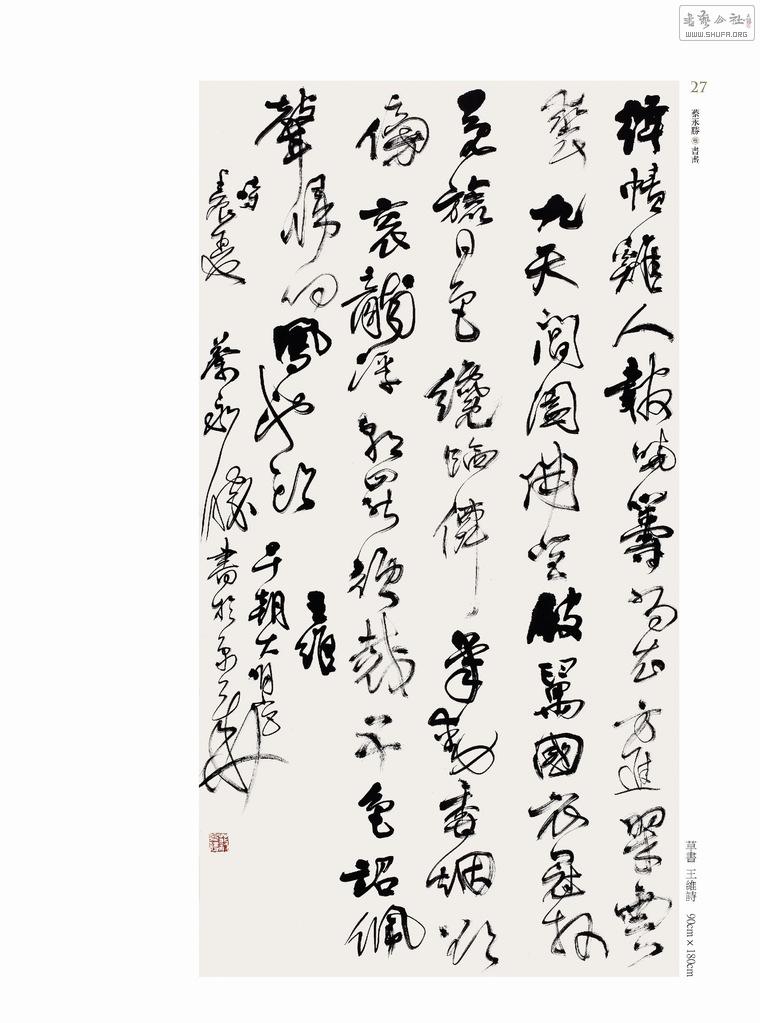 書藝公社
WWW.SHUFA.ORG
27
蔡永勝
書畫
絳幘雞人報曉籌尚衣方進翠雲
裘九天閶闔開宮殿萬國衣冠拜
冕旒日色纔臨僊掌動香烟欲
傍袞龍浮朝罷須裁五色詔佩
聲歸向鳳池頭
王維
朝大明宮
時
蔡永勝書於京
草書 王維詩 90cm×180cm